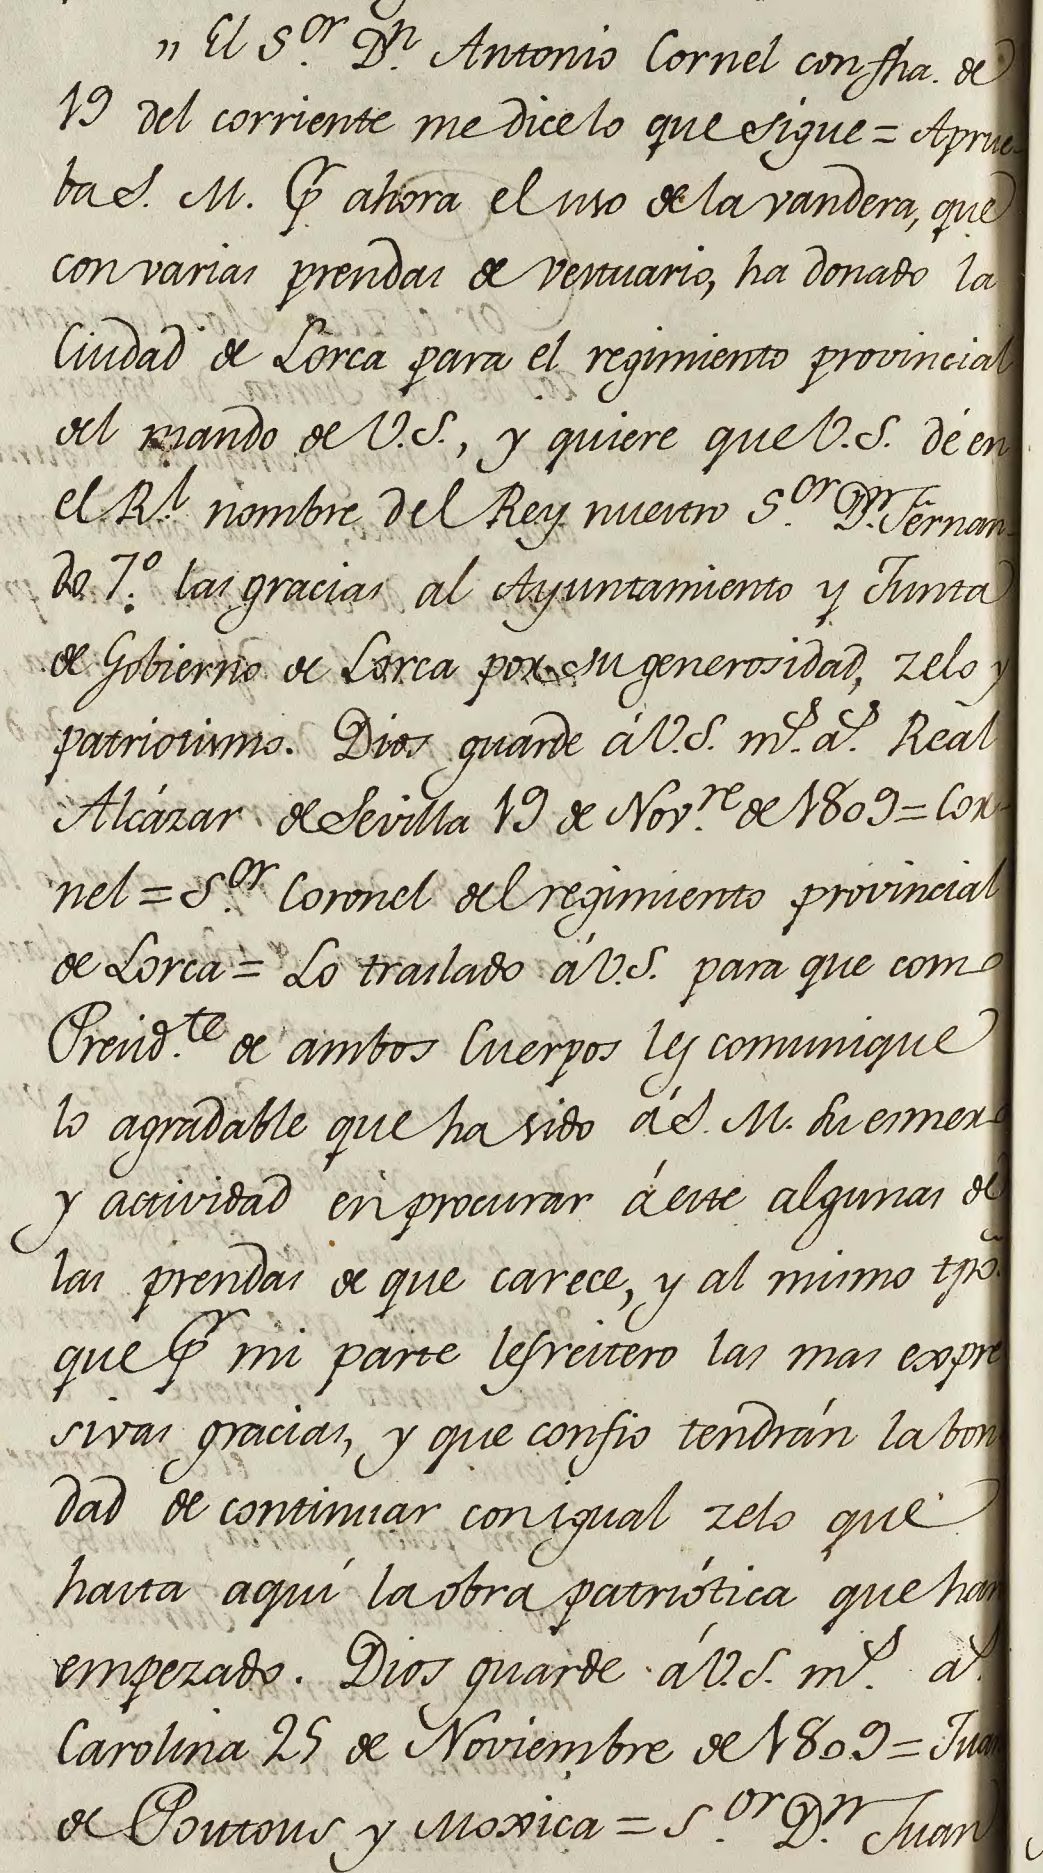 „ El S.or D.n Antonio Cornel con fha. de
19 del corriente me dice lo que sigue = Aprue-
ba S. M. Pr ahora el uso de la vandera, que
con varias prendas de vestuario, ha donado la
Ciudad de Lorca para el regimiento provincial
del mando de V.S., y quiere que V.S. dé en
el R.l nombre del Rey nuestro S.or D.n Fernan-
do 7.º las gracias al Ayuntamiento y Junta
de Gobierno de Lorca por su generosidad, zelo y
patriotismo. Dios guarde á V.S. m.s a.s Real
Alcázar de Sevilla 19 de Nov.re de 1809 = Cor-
nel = S.or Coronel del regimiento provincial
de Lorca = Lo traslado á V.S. para que como
Presid.te de ambos Cuerpos les comunique
lo agradable que ha sido á S. M. su esmero
y actividad en procurar á este algunas de
las prendas de que carece, y al mismo tpõ.
que Pr mi parte les reitero las mas expre
sivas gracias, y que confio tendrán la bon
dad de continuar con igual zelo que
hasta aquí la obra patriótica que han
empezado. Dios guarde á V.S. m.s a.s
Carolina 25 de Noviembre de 1809 = Juan
de Poutous y Moxica = S.or D.n Juan